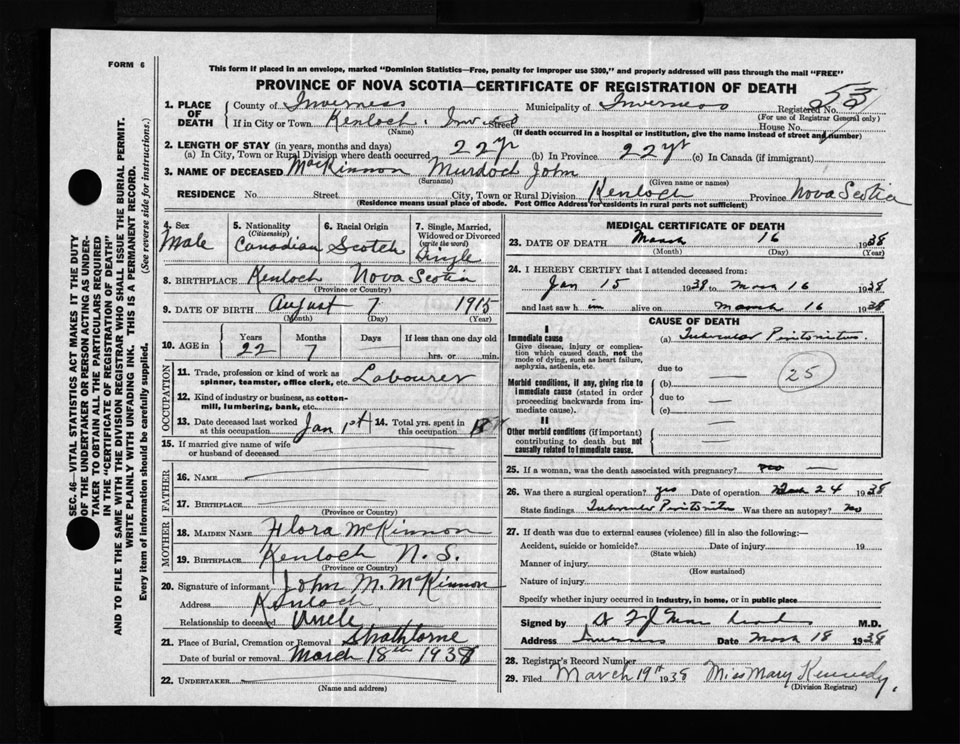 FORM 6
This form if placed in an envelope, marked "Dominion Statistics—Free, penalty for improper use $300," and properly addressed will pass through the mail "FREE"
PROVINCE OF NOVA SCOTIA—CERTIFICATE OF REGISTRATION OF DEATH
1. PLACE OF DEATH County of Inverness Municipality of Inverness Registered No.
(For use of Registrar General only)
If in City or Town Kenloch. Inv Street House No.
(Name) (If death occurred in a hospital or institution, give the name instead of street and number)
2. LENGTH OF STAY (in years, months and days)
(a) In City, Town or Rural Division where death occurred 22 yr (b) In Province 22 yr (c) In Canada (if immigrant)
3. NAME OF DECEASED MacKinnon Murdoch John
(Surname) (Given name or names)
RESIDENCE No. Street City, Town or Rural Division Kenloch Province Nova Scotia
(Residence means usual place of abode. Post Office Address for residents in rural parts not sufficient)
4. Sex Male
5. Nationality (Citizenship) Canadian
6. Racial Origin Scotch
7. Single, Married, Widowed or Divorced (write the word) Single
8. BIRTHPLACE Kenloch Nova Scotia
(Province or Country)
9. DATE OF BIRTH August 7 1915
(Month) (Day) (Year)
10. AGE in Years Months Days If less than one day old
22 7 hrs. or min.
OCCUPATION
11. Trade, profession or kind of work as spinner, teamster, office clerk, etc. Labourer
12. Kind of industry or business, as cotton-mill, lumbering, bank, etc.
13. Date deceased last worked at this occupation Jan 1st 14. Total yrs. spent in this occupation
15. If married give name of wife or husband of deceased
FATHER
16. NAME
17. BIRTHPLACE
(Province or Country)
MOTHER
18. MAIDEN NAME Flora McKinnon
19. BIRTHPLACE Kenloch N. S.
(Province or Country)
20. Signature of informant John M. McKinnon
Address Kenloch
Relationship to deceased Uncle
21. Place of Burial, Cremation or Removal Strathlorne
Date of burial or removal March 18th 1938
22. UNDERTAKER
(Name and address)
MEDICAL CERTIFICATE OF DEATH
23. DATE OF DEATH March 16 1938
(Month) (Day) (Year)
24. I HEREBY CERTIFY that I attended deceased from:
Jan 15 1938 to Mar 16 1938
and last saw him alive on March 16 1938
CAUSE OF DEATH
I
Immediate cause
Give disease, injury or complication which caused death, not the mode of dying, such as heart failure, asphyxia, asthenia, etc.
(a) Tubercular Peritonitis
due to
Morbid conditions, if any, giving rise to immediate cause (stated in order proceeding backwards from immediate cause).
(b)
due to
(c)
25
II
Other morbid conditions (if important) contributing to death but not causally related to immediate cause.
25. If a woman, was the death associated with pregnancy?
26. Was there a surgical operation? yes Date of operation 24 1938
State findings Tubercular Peritonitis Was there an autopsy? no
27. If death was due to external causes (violence) fill in also the following:—
Accident, suicide or homicide? Date of injury 19
(State which)
Manner of injury
(How sustained)
Nature of injury
Specify whether injury occurred in industry, in home, or in public place
Signed by M.D.
Address Inverness Date March 18 1938
28. Registrar's Record Number
29. Filed March 19th 1938 Miss Mary Kennedy.
(Division Registrar)
SEC. 46—VITAL STATISTICS ACT MAKES IT THE DUTY
OF THE UNDERTAKER OR PERSON ACTING AS UNDER-
TAKER TO OBTAIN ALL THE PARTICULARS REQUIRED
IN THE "CERTIFICATE OF REGISTRATION OF DEATH"
AND TO FILE THE SAME WITH THE DIVISION REGISTRAR WHO SHALL ISSUE THE BURIAL PERMIT.
WRITE PLAINLY WITH UNFADING INK. THIS IS A PERMANENT RECORD.
Every item of information should be carefully supplied. (See reverse side for instructions.)